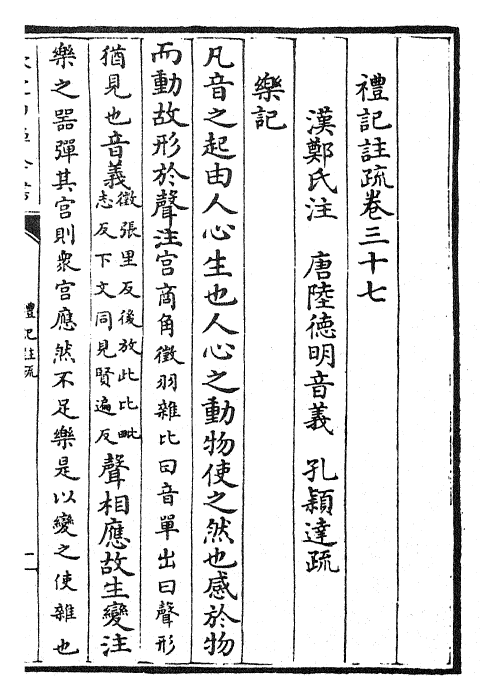 禮記註疏卷三十七
漢鄭氏注　唐陸德明音義　孔穎達疏
樂記
凡音之起由人心生也人心之動物使之然也感於物
而動故形於聲注宫商角徵羽雜比曰音單出曰聲形
猶見也音義徵張里反後放此比毗
志反下文同見賢遍反聲相應故生變注
樂之器彈其宫則衆宫應然不足樂是以變之使雜也
禮記註疏